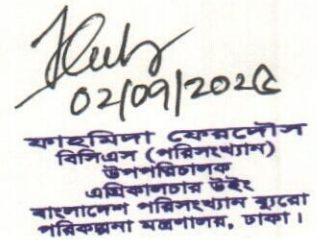 02/09/2025
ফাহমিদা ফেরদৌস
বিসিএস (পরিসংখ্যান)
উপপরিচালক
এগ্রিকালচার উইং
বাংলাদেশ পরিসংখ্যান ব্যুরো
পরিকল্পনা মন্ত্রণালয়, ঢাকা।